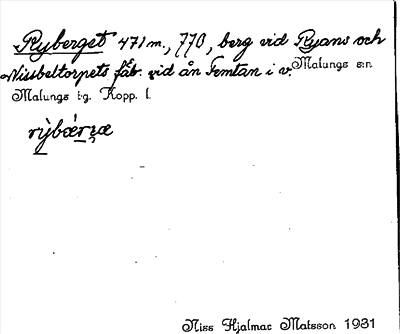 Ryberget 471 m., 770, berg vid Ryans och
Nissbeltorpets fäb. vid ån Femtan i v. Malungs s:n
Malungs t:g. Kopp. l.
rỳbǽrʒæ
Niss Hjalmar Matsson 1931